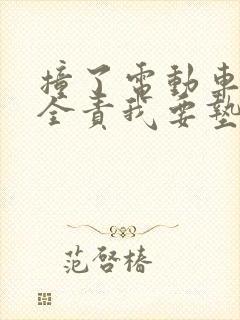 撞了電動車
全責我要墊
范啓椿